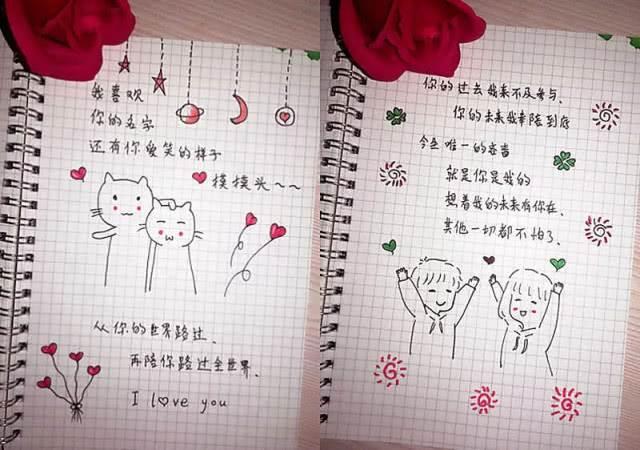 我喜欢
你的名字
还有你爱笑的样子
摸摸头~~
从你的世界路过、
再陪你路过全世界、
I love you
你的过去我来不及参与、
你的未来我奉陪到底
今生唯一的奢望
就是你是我的
想着我的未来有你在、
其他一切都不怕了、